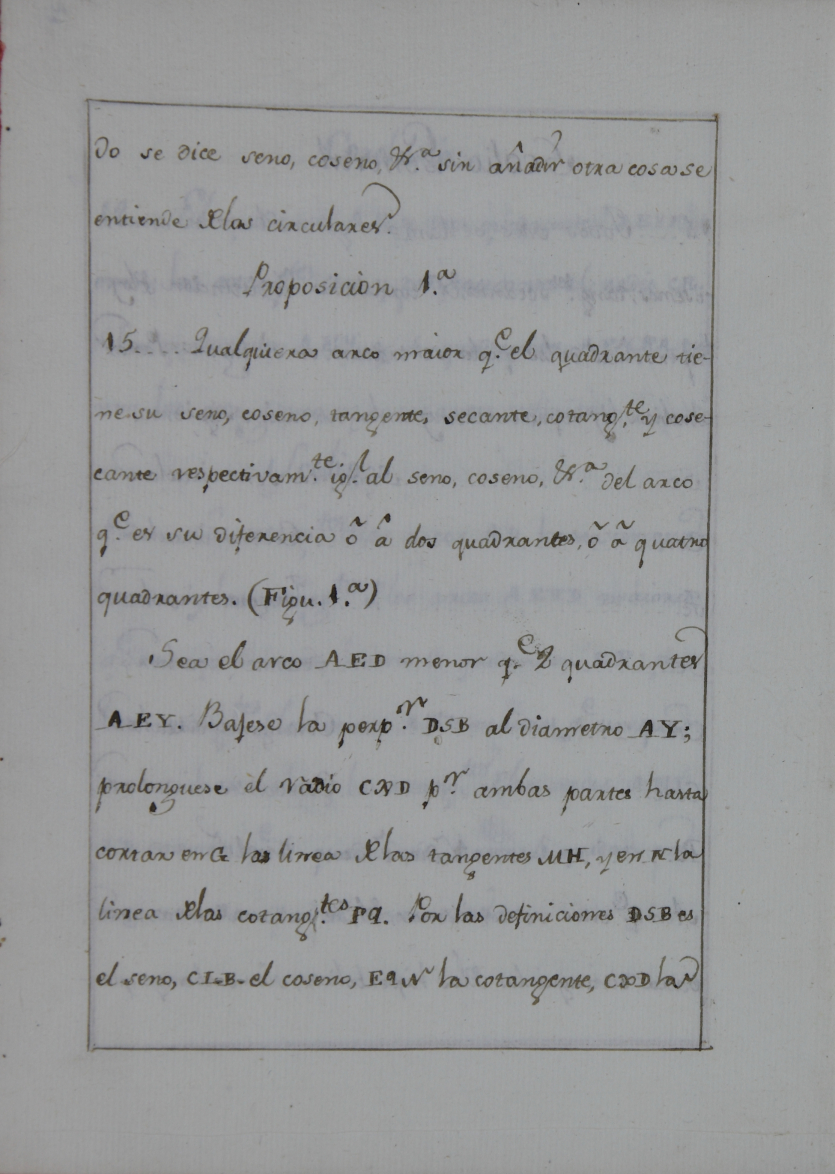 do se dice seno, coseno, &.ª sin añadir otra cosa se
entiende de las circulares.
Proposicion 1.ª
15.... Qualquiera arco maior q.e el quadrante tie-
ne su seno, coseno, tangente, secante, cotang.te y cose-
cante respectivam.te ig.l al seno, coseno, &.ª del arco
q.e es su diferencia ô â dos quadrantes, ô â quatro
quadrantes. (Figu. 1.ª)
Sea el arco AED menor q.e 2 quadrantes
AEY. Bajese la perp.r DSB al diametro AY;
prolonguese el radio CXD p.r ambas partes hasta
cortar en G la linea de las tangentes MH, y en N la
linea de las cotang.tes PQ. Por las definiciones DSB es
el seno, CLB el coseno, EQN la cotangente, CXD la